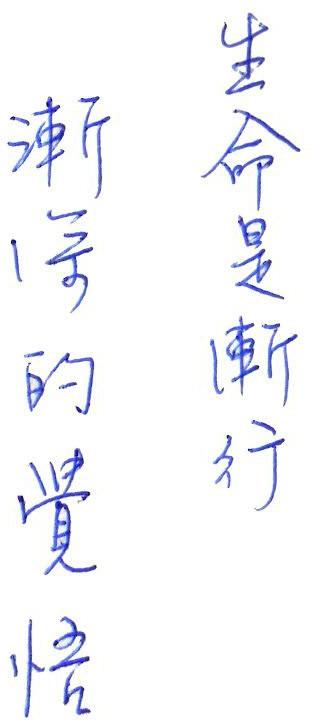 生命是漸行
漸深的覺悟